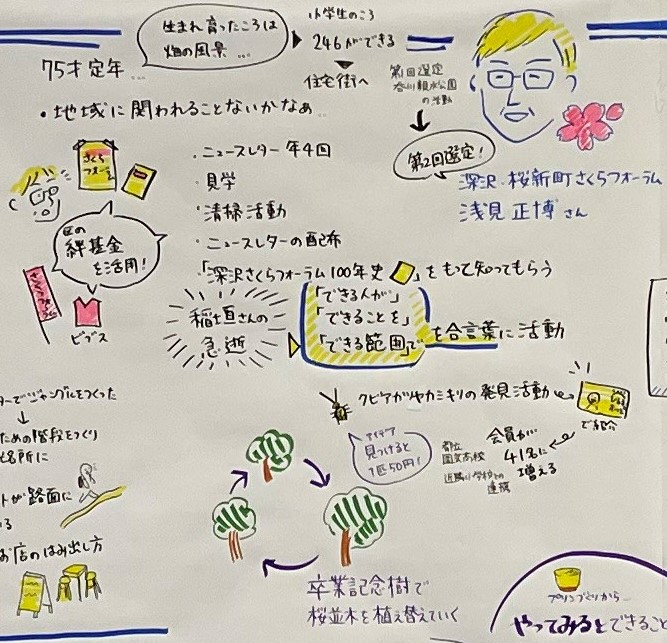 生まれ育ったころは
畑の風景…
小学生のころ
246ができる
住宅街へ
75才定年…
・地域に関われることないかなぁ…
第1回選定
呑川親水公園
の活動
第2回選定!
深沢・桜新町さくらフォーラム
浅見 正博 さん
さくら
フォーラム
区の
絆基金
を活用!
ビブス
・ニュースレター 年4回
・見学
・清掃活動
・ニュースレターの配布
・「深沢さくらフォーラム100年史」をもって知ってもらう
稲垣さんの
急逝
「できる人が」
「できることを」
「できる範囲」で
を合言葉に活動
クビアカツヤカミキリの発見活動
で紹介
アイデア
見つけると
1匹50円!
都立
園芸高校
近隣小学校との
連携
会員が
41名に
増える
ターでジャングルをつくった
ための階段をつくり
名所に
トが路面に
いる
お店のはみ出し方
卒業記念樹で
桜並木を植え替えていく
プリンづくりから…
やってみるとできること